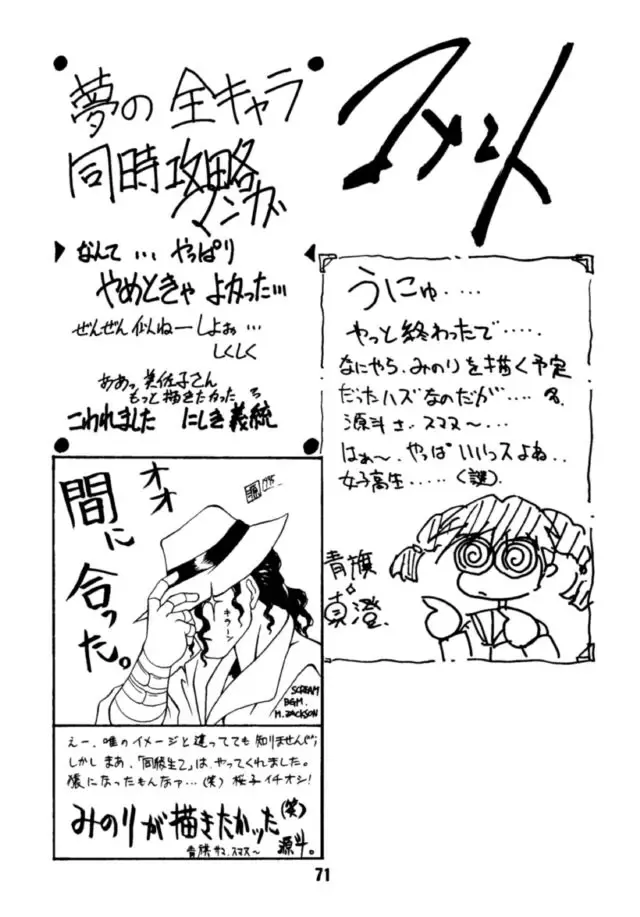 コメント
夢の 全キャラ
同時攻略
マンガ
なんて … やっぱり
やめときゃ よカった…
ぜんぜん 似ねーしよぉ …
しくしく
ああっ 美佐子さん
もっと描きたかった
こわれました にしき義統
うにゅ‥‥
やっと終わったで‥‥‥
なにやら、みのりを描く予定
だったハズなのだが‥‥
源斗さ、スマヌ〜…
はぁ〜、やっぱいいっスよね..
女子高生‥‥‥(謎).
青旗
真澄
オオ
間に
合った。
キラーン
SCREAM
BGM.
M.JACKSON
えー、唯のイメージと違ってても知りませんぜ;
しかしまあ、「同級生2」は、やってくれました。
猿になったもんなァ…(笑)桜子イチオシ!
みのりが描きたかった(笑)
青旗サマ、スマヌ〜
源斗。
71